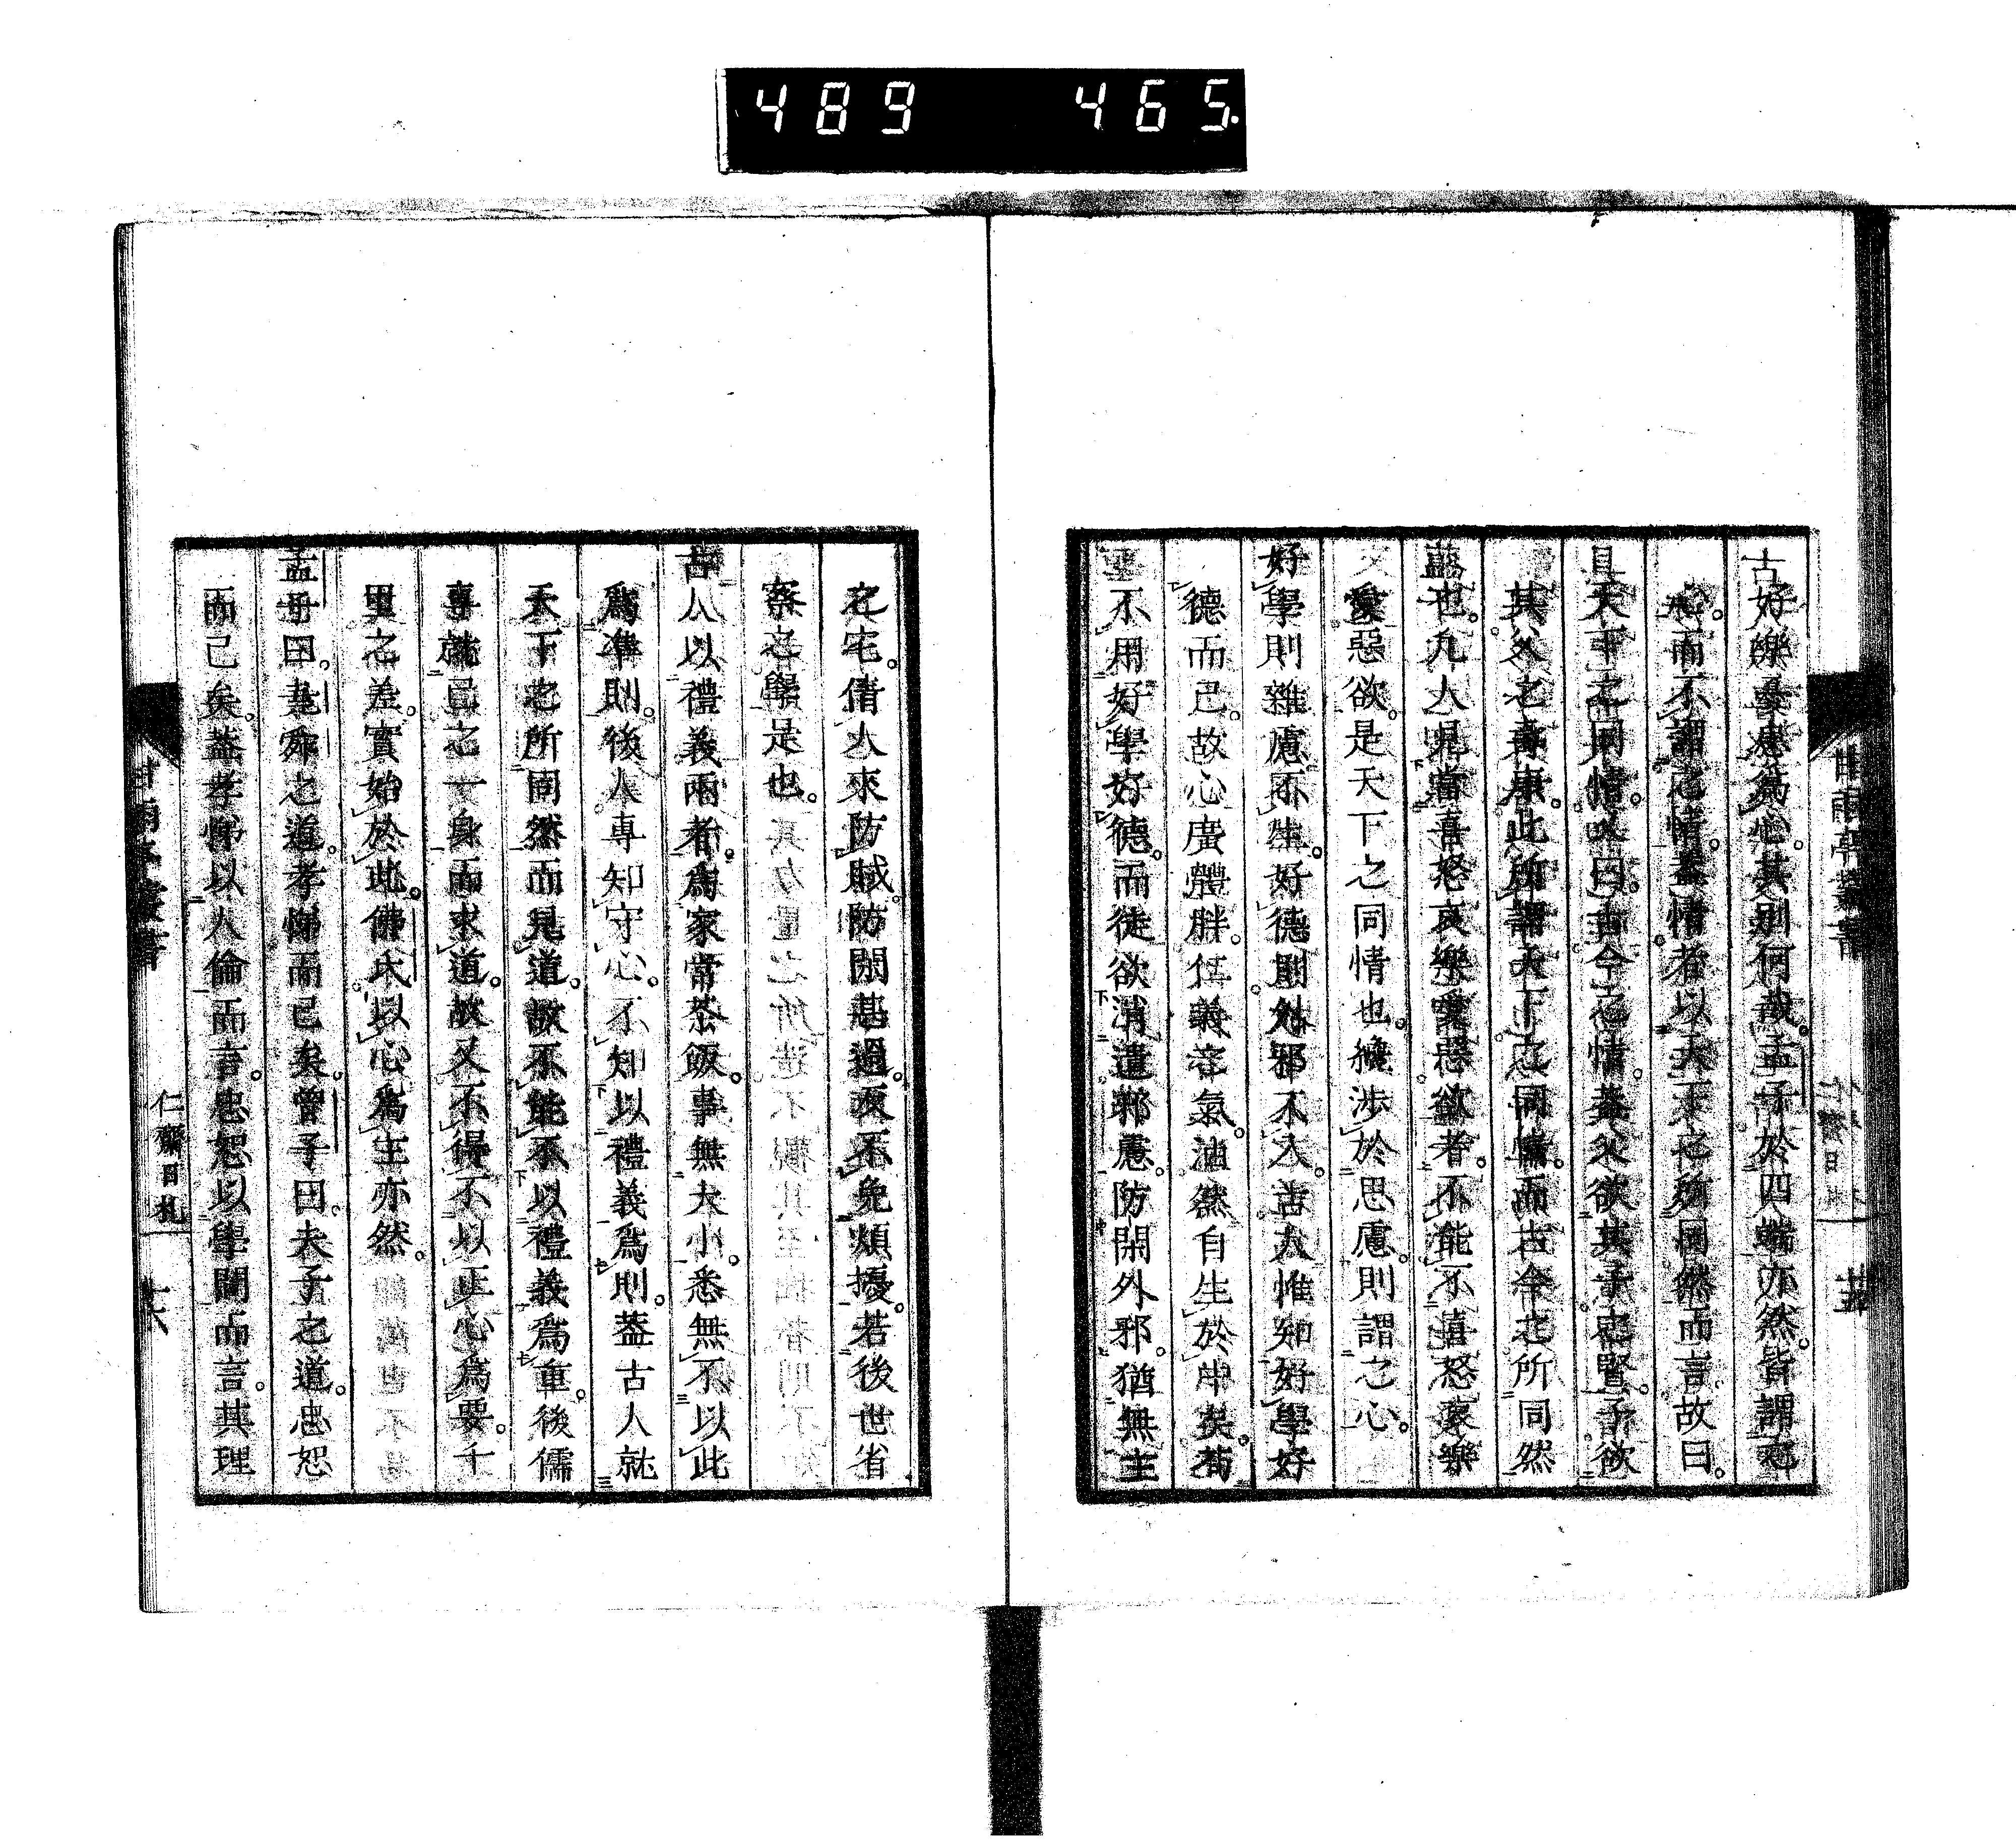 489 465.
甘雨亭叢書
好樂憂患爲心其別何哉。孟子於四端亦然。皆謂之
心。而不謂之情。蓋情者以天下之所同然而言。故曰。
天下之同情。又曰。古今之情。蓋父欲其子之賢。子欲
其父之壽康。此所謂天下之同情。而古今之所同然
也。凡人見當喜怒哀樂愛惡欲者。不能不喜怒哀樂
愛惡欲。是天下之同情也。纔涉於思慮。則謂之心。
好學則雜慮不生。好德則外邪不入。古人惟知好學好
德而已。故心廣體胖。仁義之氣。油然自生於中矣。苟
不用好學好德。而徒欲消遣雜慮。防閑外邪。猶無主
之宅。倩人來防賊。防閑甚過。反不免煩擾。若後世省
察之學是也。
古人以禮義兩者。爲家常茶飯。事無大小。悉無不以此
爲準則。後人專知守心。不知以禮義爲則。蓋古人就
天下之所同然而見道。故不能不以禮義爲重。後儒
專就己之一身而求道。故又不得不以正心爲要。千
里之差。實始於此。佛氏以心爲主亦然。
孟子曰。堯舜之道。孝悌而已矣。曾子曰。夫子之道。忠恕
而已矣。蓋孝悌以人倫而言。忠恕以學問而言。其理
仁齋日札
十六